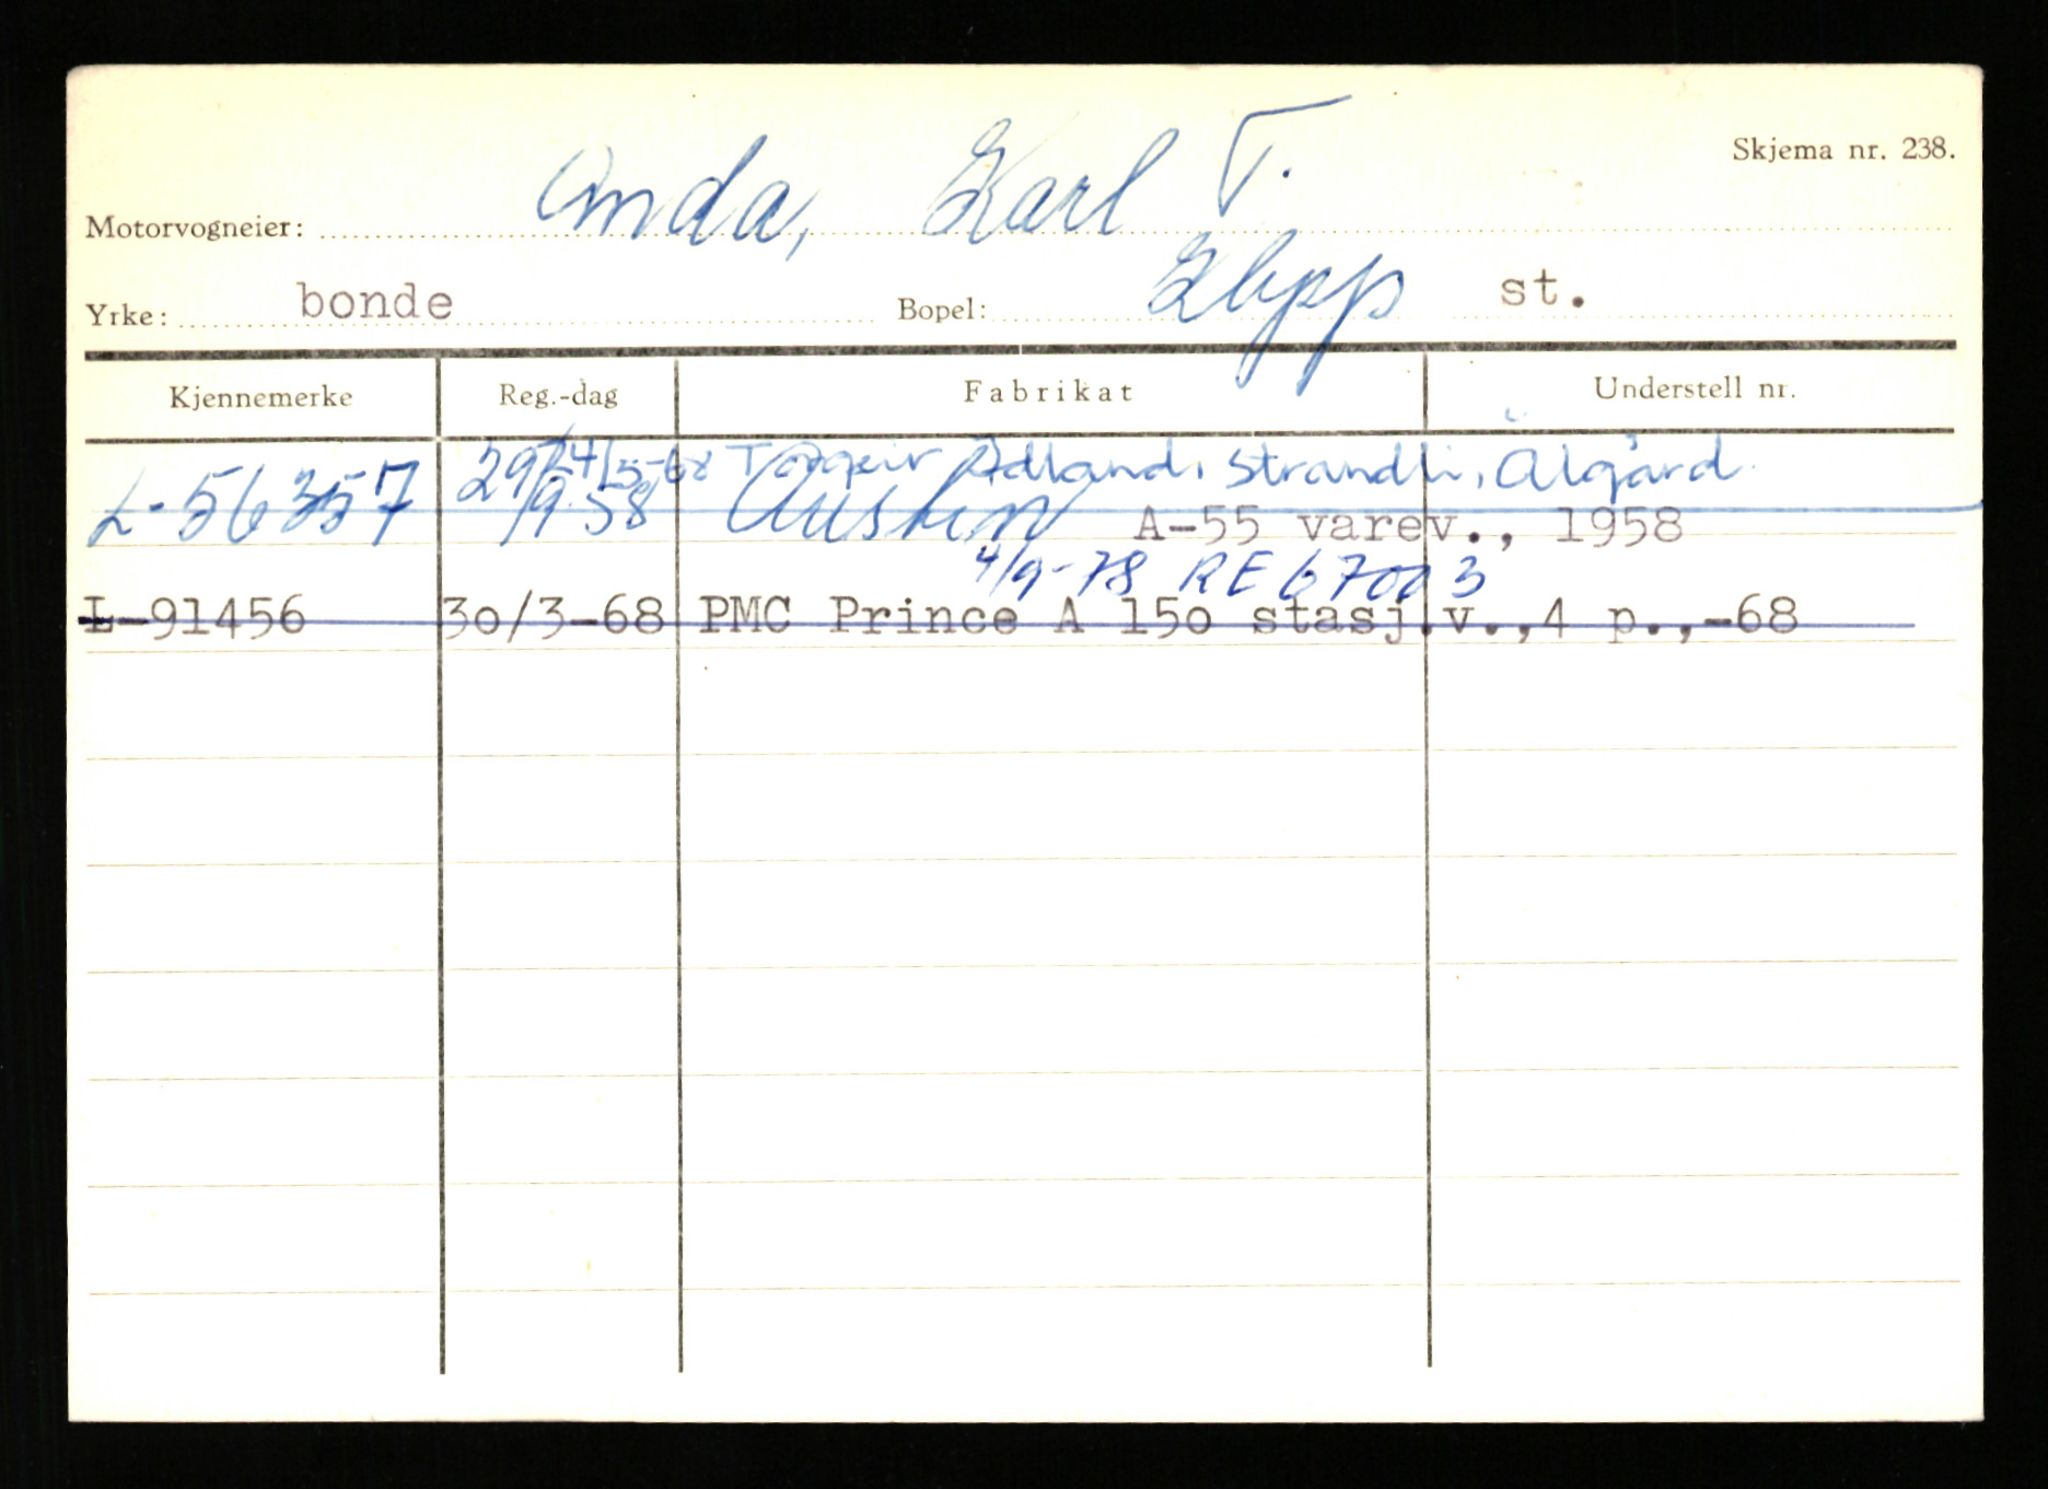 Skjema nr. 238.
Motorvogneier: Anda, Karl T.
Yrke: bonde Bopel: Klepp st.
Kjennemerke Reg.-dag Fabrikat Understell nr.
24/5-68 Torgeir Ådland, Strandli, Ålgård
L-56357 29/9.58 Austin A-55 varev., 1958
4/9-78 RE 67003
L-91456 30/3-68 PMC Prince A 150 stasj.v.,4 p.,-68